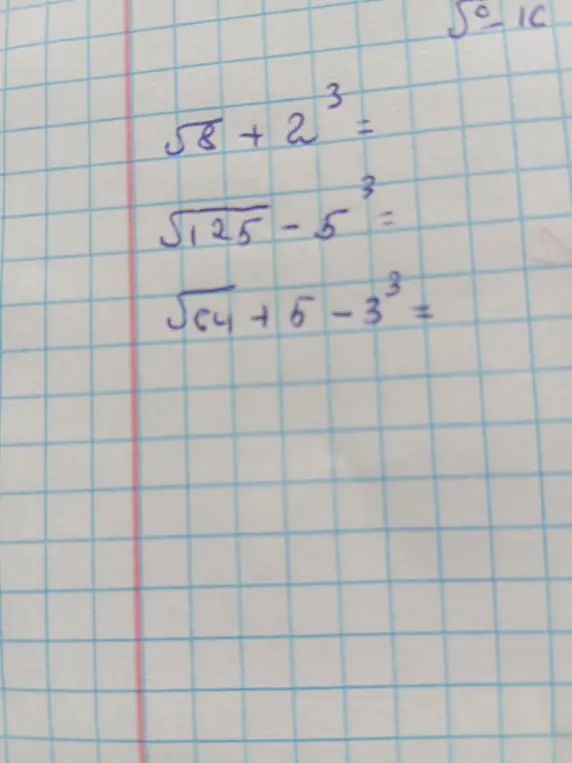 √0 - 16
√8 + 2³ =
√125 - 5³ =
√64 + 5 - 3³ =